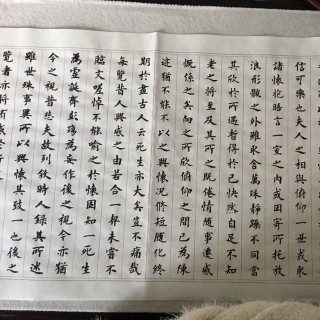 信可樂也夫人之相與俯仰一世或取
諸懷抱晤言一室之內或因寄所託放
浪形骸之外雖取舍萬殊靜躁不同當
其欣於所遇暫得於己快然自足不知
老之將至及其所之既倦情隨事遷感
慨係之矣向之所欣俯仰之間已為陳
迹猶不能不以之興懷況修短隨化終
期於盡古人云死生亦大矣豈不痛哉
每覽昔人興感之由若合一契未嘗不
臨文嗟悼不能喻之於懷固知一死生
為虛誕齊彭殤為妄作後之視今亦猶
今之視昔悲夫故列敘時人錄其所述
雖世殊事異所以興懷其致一也後之
覽者亦將有感於